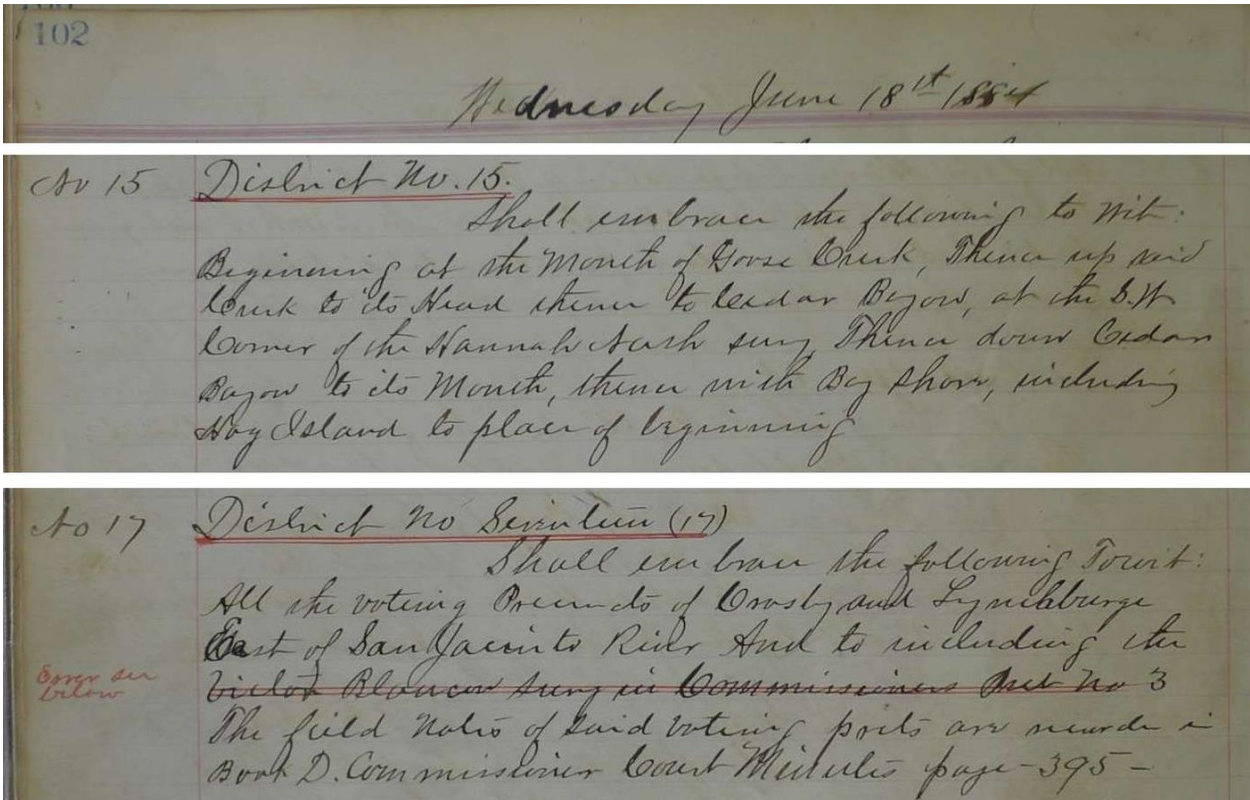 102
Wednesday June 18st 1884
No 15 District No. 15.
Shall embrace the following to Wit:
Beginning at the Mouth of Goose Creek, Thence up said
Creek to its Head thence to Cedar Bayow, at the S.W
Corner of the Hannah Nash surv, Thence down Cedar
Bayow to its Mouth, thence with Bay Shore, including
Hog Island to place of beginning
No 17 District No Seventeen (17)
Shall embrace the following Towit:
All the voting Precincts of Crosby and Lynchburge
East of San Jacinto River And to including the
Error see
below
Victor Blancow survy in Commissioners Prct No 3
The field Notes of said voting prcts are recorde in
Book D. Commissioner Court Minutes page - 395 -